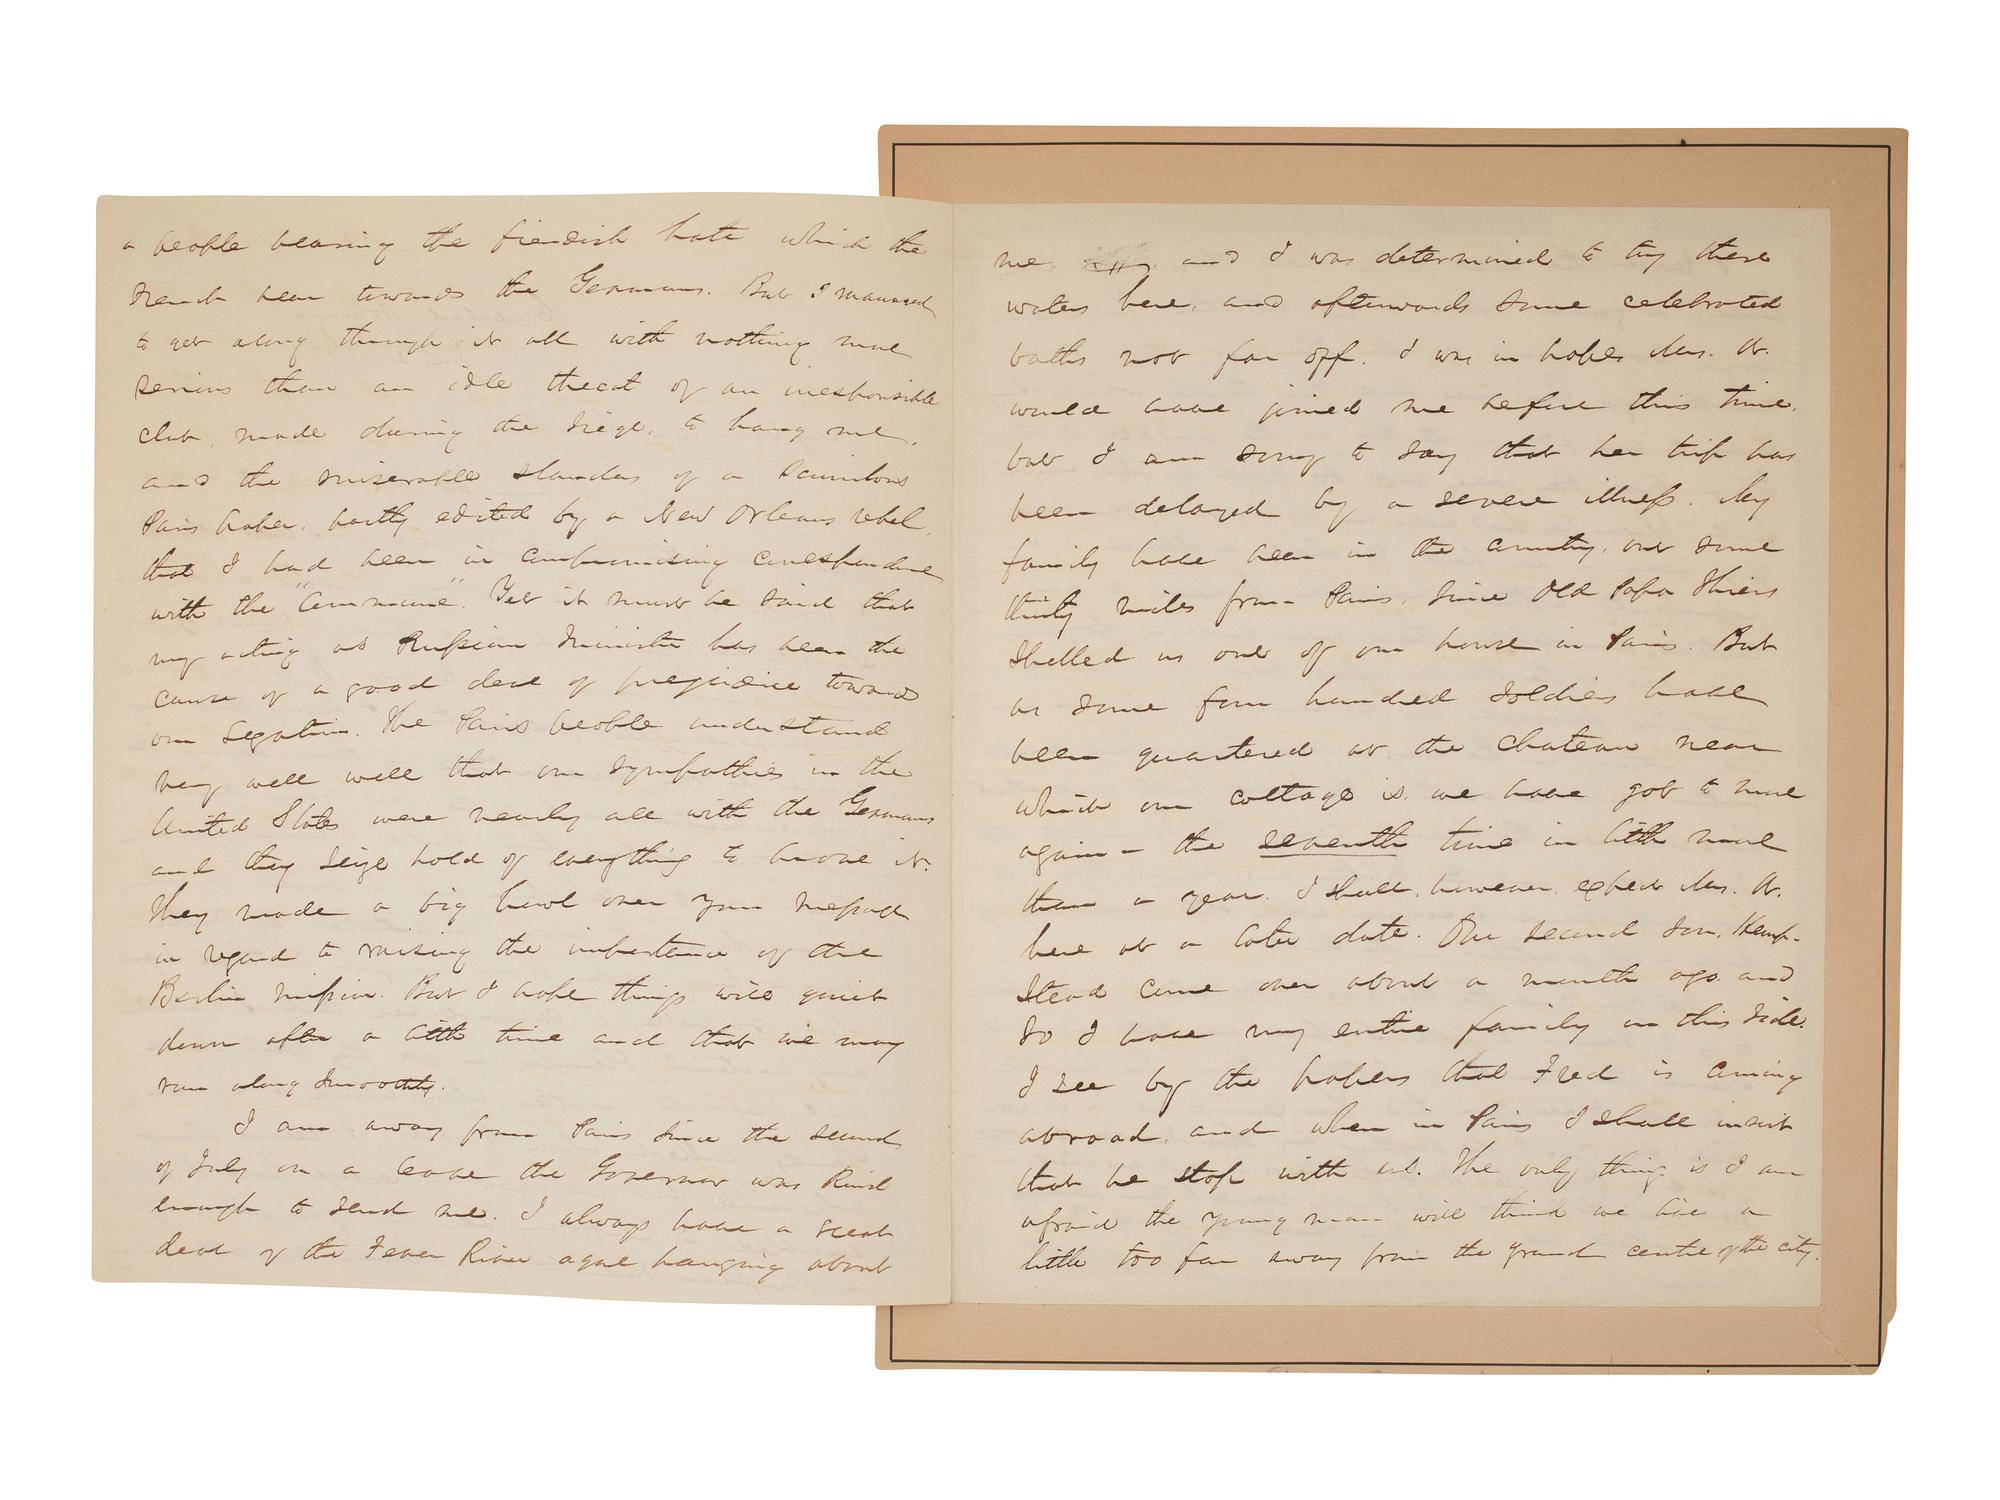 a people bearing the fiendish hate which the
French bear towards the Germans. But I managed
to get along through it all with nothing more
serious than an idle threat of an irresponsible
club, made during the siege, to hang me,
and the miserable slanders of a scurrilous
Paris paper, partly edited by a New Orleans rebel,
that I had been in compromising correspondence
with the "Commune". Yet it must be said that
my acting as Prussian Minister has been the
cause of a good deal of prejudice towards
our Legation. The Paris people understand
very well well that our sympathies in the
United States were nearly all with the Germans
and they seize hold of everything to prove it.
They made a big howl over your message
in regard to raising the importance of the
Berlin mission. But I hope things will quiet
down after a little time and that we may
run along smoothly.
I am away from Paris since the second
of July on a leave the Governor was kind
enough to send me. I always have a great
deal of the Fever River ague hanging about
me, and I was determined to try these
waters here, and afterwards some celebrated
baths not far off. I was in hopes Mrs. W.
would have joined me before this time,
but I am sorry to say that her trip has
been delayed by a severe illness. My
family have been in the country, out some
thirty miles from Paris, since Old Papa Thiers
shelled us out of our house in Paris. But
as some four hundred soldiers have
been quartered at the chateau near
which our cottage is, we have got to move
again - the seventh time in little more
than a year. I shall, however, expect Mrs. W.
here at a later date. Our second son, Hemp-
stead came over about a month ago and
so I have my entire family on this side.
I see by the papers that Fred is coming
abroad, and when in Paris I shall insist
that he stop with us. The only thing is I am
afraid the young man will think we live a
little too far away from the grand centre of the city.